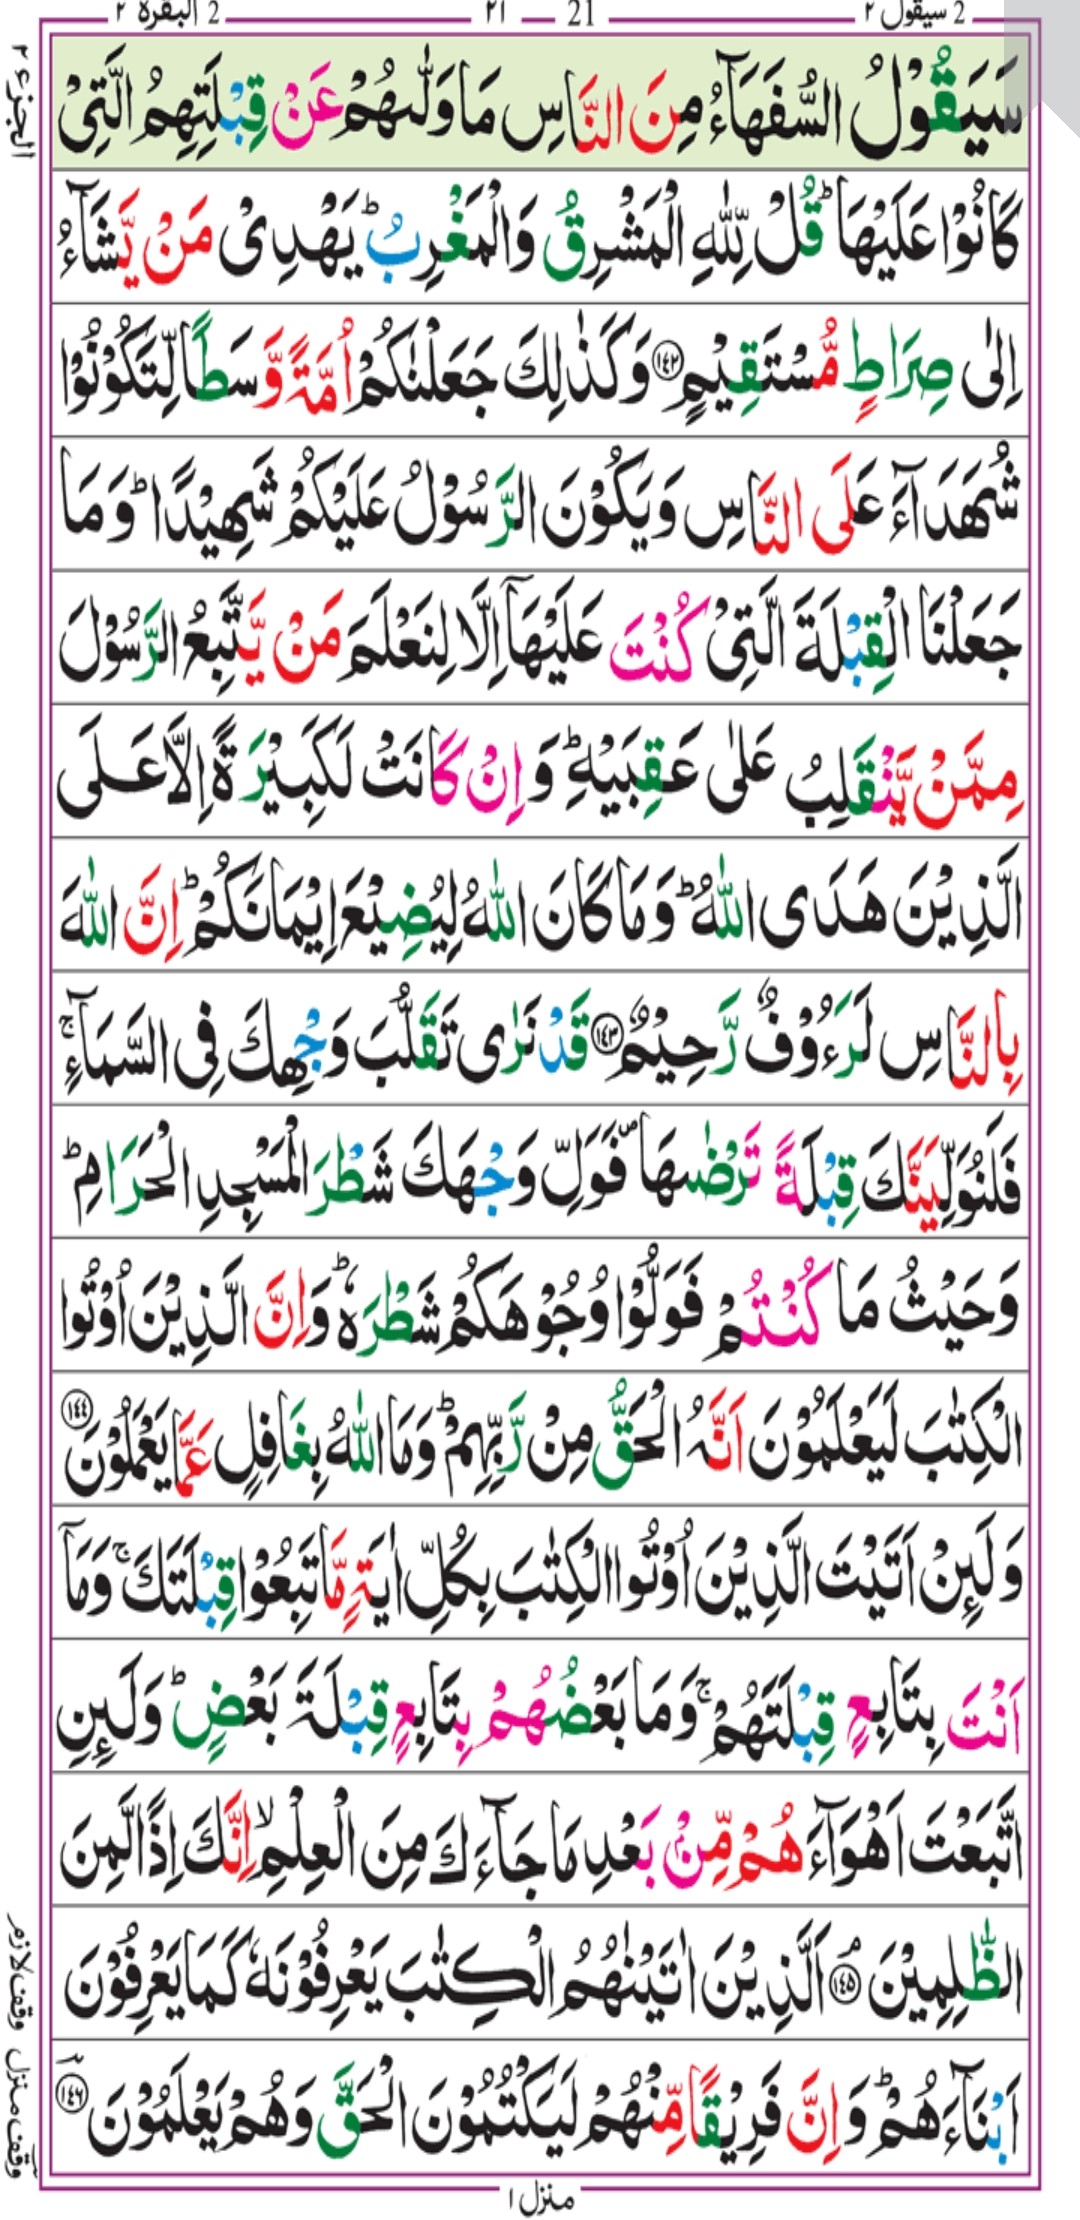 2 سیقول ٢
21 — ٢١
2 البقرة ٢
الجزء ٢
سَيَقُوْلُ السُّفَهَآءُ مِنَ النَّاسِ مَا وَلّٰىهُمْ عَنْ قِبْلَتِهِمُ الَّتِىْ
كَانُوْا عَلَيْهَا ؕ قُلْ لِّلّٰهِ الْمَشْرِقُ وَالْمَغْرِبُ ؕ يَهْدِىْ مَنْ يَّشَآءُ
اِلٰى صِرَاطٍ مُّسْتَقِيْمٍ ﴿١٤٢﴾ وَكَذٰلِكَ جَعَلْنٰكُمْ اُمَّةً وَّسَطًا لِّتَكُوْنُوْا
شُهَدَآءَ عَلَى النَّاسِ وَيَكُوْنَ الرَّسُوْلُ عَلَيْكُمْ شَهِيْدًا ؕ وَمَا
جَعَلْنَا الْقِبْلَةَ الَّتِىْ كُنْتَ عَلَيْهَآ اِلَّا لِنَعْلَمَ مَنْ يَّتَّبِعُ الرَّسُوْلَ
مِمَّنْ يَّنْقَلِبُ عَلٰى عَقِبَيْهِ ؕ وَاِنْ كَانَتْ لَكَبِيْرَةً اِلَّا عَلَى
الَّذِيْنَ هَدَى اللّٰهُ ؕ وَمَا كَانَ اللّٰهُ لِيُضِيْعَ اِيْمَانَكُمْ ؕ اِنَّ اللّٰهَ
بِالنَّاسِ لَرَءُوْفٌ رَّحِيْمٌ ﴿١٤٣﴾ قَدْ نَرٰى تَقَلُّبَ وَجْهِكَ فِى السَّمَآءِ ۚ
فَلَنُوَلِّيَنَّكَ قِبْلَةً تَرْضٰىهَا ۪ فَوَلِّ وَجْهَكَ شَطْرَ الْمَسْجِدِ الْحَرَامِ ؕ
وَحَيْثُ مَا كُنْتُمْ فَوَلُّوْا وُجُوْهَكُمْ شَطْرَهٗ ؕ وَاِنَّ الَّذِيْنَ اُوْتُوا
الْكِتٰبَ لَيَعْلَمُوْنَ اَنَّهُ الْحَقُّ مِنْ رَّبِّهِمْ ؕ وَمَا اللّٰهُ بِغَافِلٍ عَمَّا يَعْمَلُوْنَ ﴿١٤٤﴾
وَلَئِنْ اَتَيْتَ الَّذِيْنَ اُوْتُوا الْكِتٰبَ بِكُلِّ اٰيَةٍ مَّا تَبِعُوْا قِبْلَتَكَ ۚ وَمَآ
اَنْتَ بِتَابِعٍ قِبْلَتَهُمْ ۚ وَمَا بَعْضُهُمْ بِتَابِعٍ قِبْلَةَ بَعْضٍ ؕ وَلَئِنِ
اتَّبَعْتَ اَهْوَآءَهُمْ مِّنْۢ بَعْدِ مَا جَآءَكَ مِنَ الْعِلْمِ ۙ اِنَّكَ اِذًا لَّمِنَ
الظّٰلِمِيْنَ ﴿١٤٥﴾ۘ اَلَّذِيْنَ اٰتَيْنٰهُمُ الْكِتٰبَ يَعْرِفُوْنَهٗ كَمَا يَعْرِفُوْنَ
اَبْنَآءَهُمْ ؕ وَاِنَّ فَرِيْقًا مِّنْهُمْ لَيَكْتُمُوْنَ الْحَقَّ وَهُمْ يَعْلَمُوْنَ ﴿١٤٦﴾
وقف لازم
وقف منزل
منزل ١